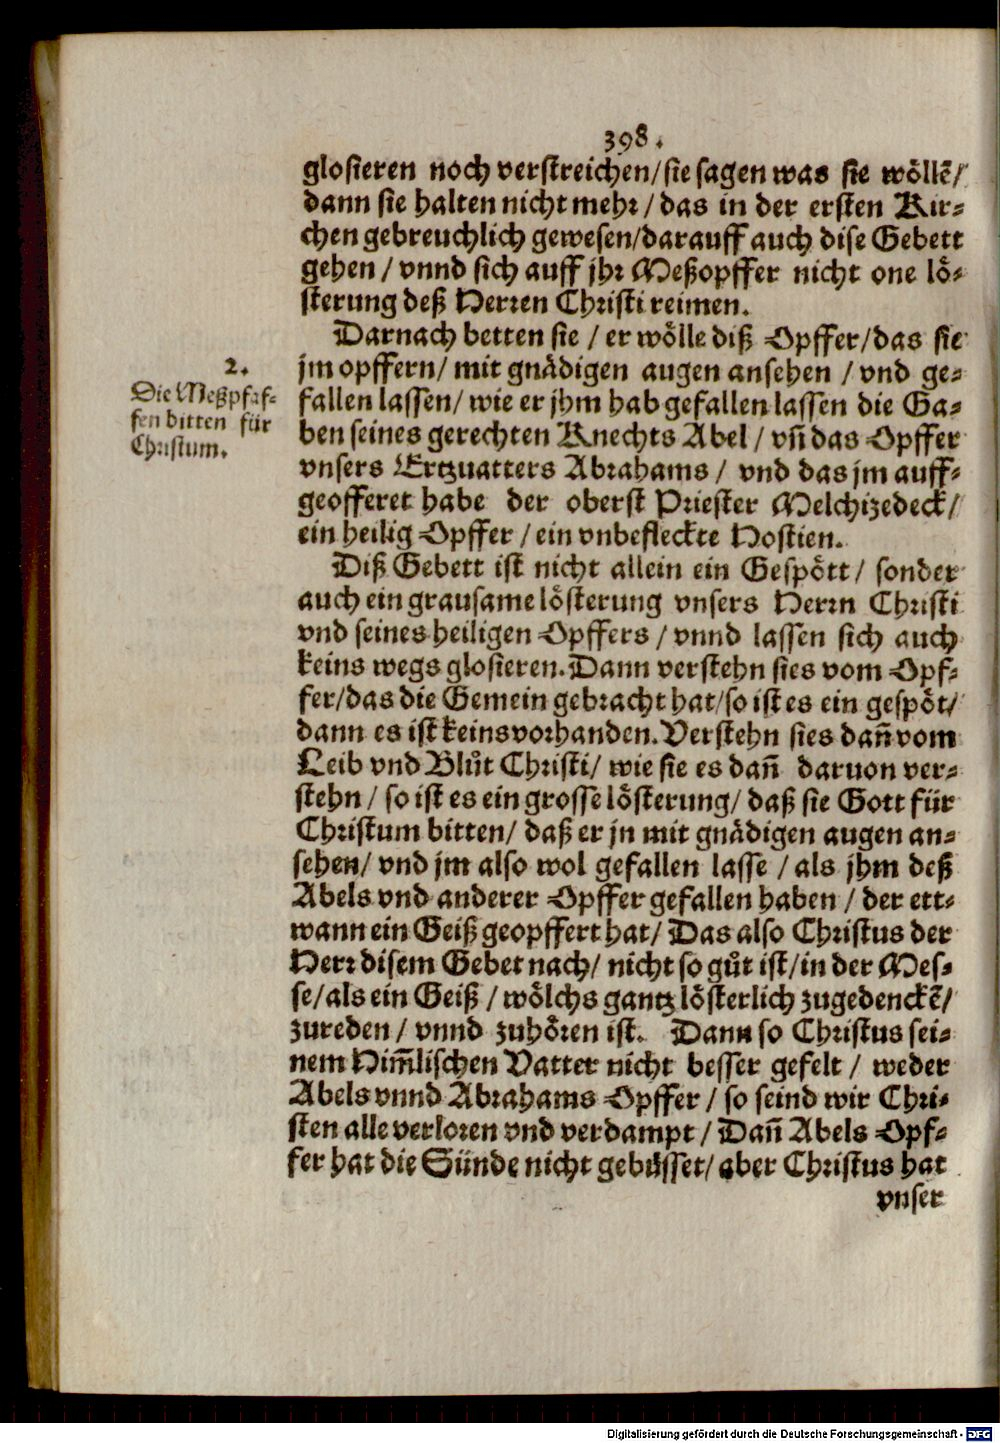 398.
glosieren noch verstreichen/sie sagen was sie wöllẽ/
dann sie halten nicht mehr/das in der ersten Kir-
chen gebreuchlich gewesen/darauff auch dise Gebett
gehen/vnnd sich auff jhr Meßopffer nicht one lö-
sterung deß Herren Christi reimen.
Darnach betten sie/er wölle diß Opffer/das sie
jm opffern/mit gnädigen augen ansehen/vnd ge-
fallen lassen/wie er jhm hab gefallen lassen die Ga-
ben seines gerechten Knechts Abel/vñ das Opffer
vnsers Ertzuatters Abrahams/vnd das jm auff-
geofferet habe der oberst Priester Melchizedeck/
ein heilig Opffer/ein vnbefleckte Hostien.
2.
Die Meßpfaf-
fen bitten für
Christum.
Diß Gebett ist nicht allein ein Gespött/sonder
auch ein grausame lösterung vnsers Herrn Christi
vnd seines heiligen Opffers/vnnd lassen sich auch
keins wegs glosieren. Dann verstehn sies vom Opf-
fer/das die Gemein gebracht hat/so ist es ein gespöt/
dann es ist keins vorhanden. Verstehn sies dañ vom
Leib vnd Blůt Christi/wie sie es dañ daruon ver-
stehn/so ist es ein grosse lösterung/daß sie Gott für
Christum bitten/daß er jn mit gnädigen augen an-
sehen/vnd jm also wol gefallen lasse/als jhm deß
Abels vnd anderer Opffer gefallen haben/der ett-
wann ein Geiß geopffert hat/Das also Christus der
Herr disem Gebet nach/nicht so gůt ist/in der Mes-
se/als ein Geiß/wölchs gantz lösterlich zugedenckẽ/
zureden/vnnd zuhören ist. Dann so Christus sei-
nem Him̃lischen Vatter nicht besser gefelt/weder
Abels vnnd Abrahams Opffer/so seind wir Chri-
sten alle verloren vnd verdampt/Dañ Abels Opf-
fer hat die Sünde nicht gebüsset/aber Christus hat
vnser
Digitalisierung gefördert durch die Deutsche Forschungsgemeinschaft - DFG